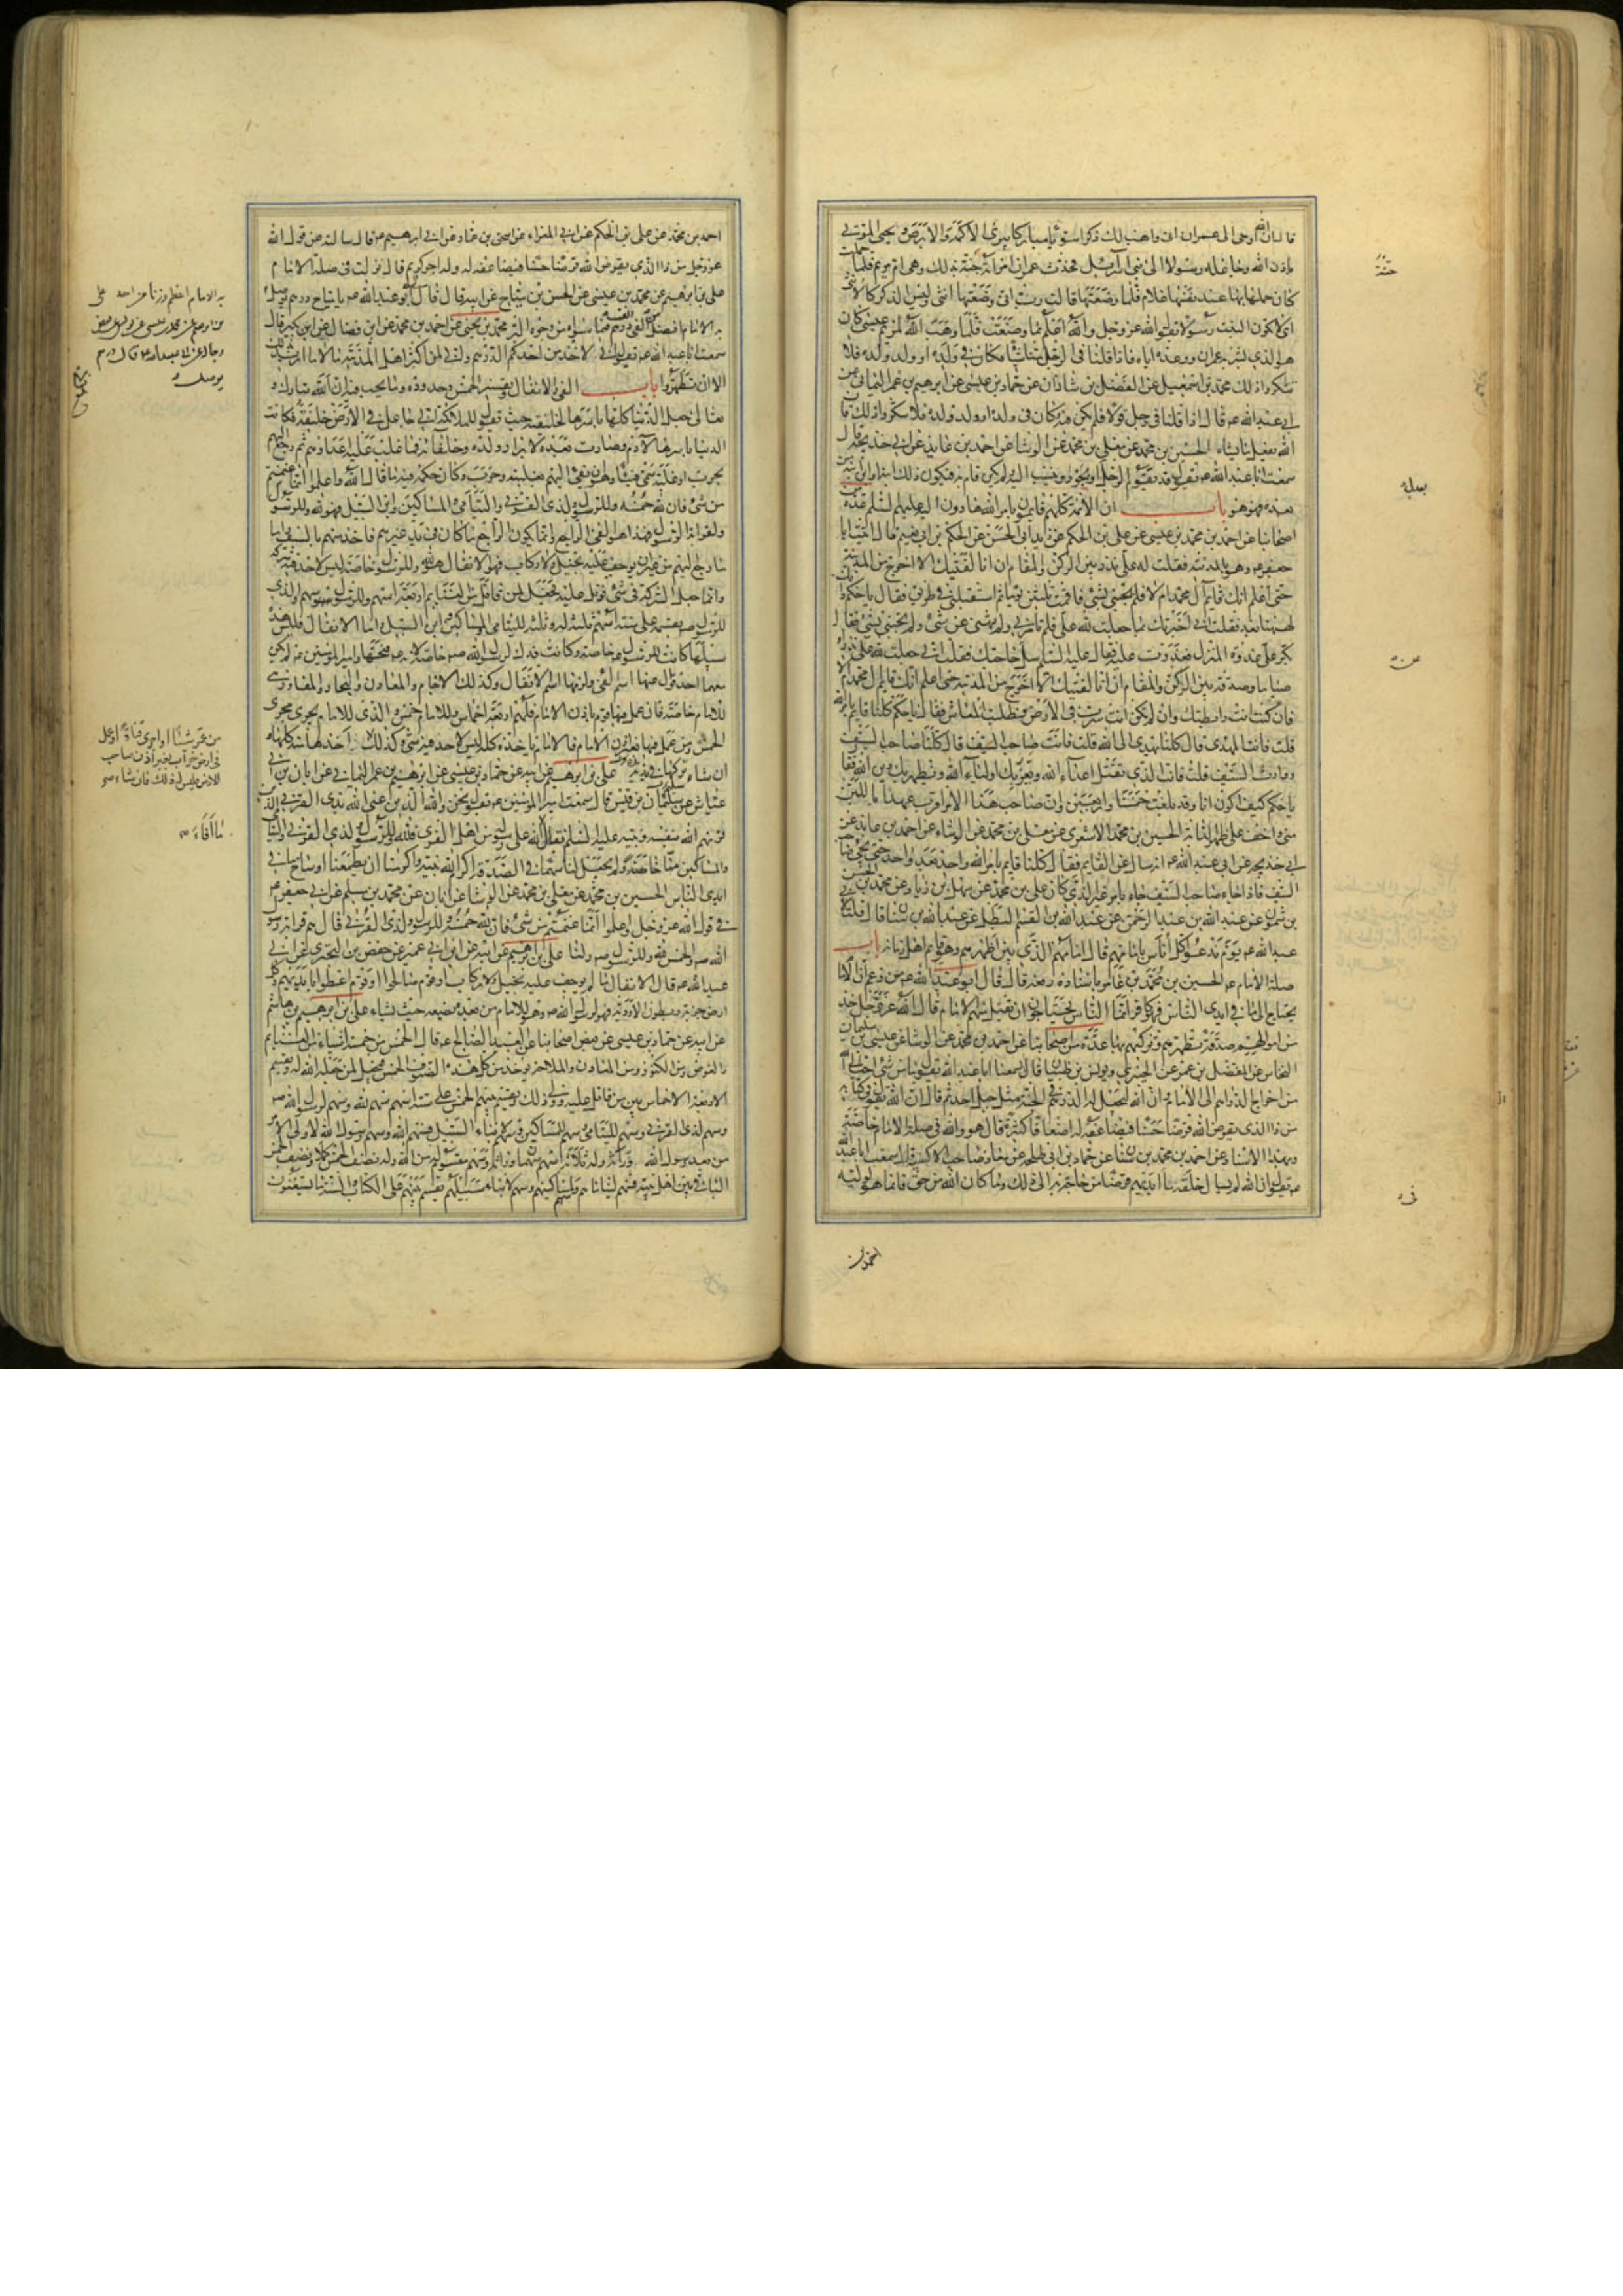 قال ان الله اوحى الى عمران انى واهب لك ذكرا سويا مباركا يبرئ الاكمه والابرص ويحيى الموتى
باذن الله وجاعله رسولا الى بنى اسرائيل فحدث عمران امرأته حنة بذلك وهى ام مريم فلما حملت
كان حملها بها عند نفسها غلام فلما وضعتها قالت رب انى وضعتها انثى وليس الذكر كالانثى
اى لا يكون البنت رسولا يقول الله عز وجل والله اعلم بما وضعت فلما وهب الله لمريم عيسى كان
هو الذى بشر به عمران ووعده اياه فاذا قلنا فى الرجل منا شيئا فكان فى ولده او ولد ولده فلا
تنكروا ذلك محمد بن اسمعيل عن الفضل بن شاذان عن حماد بن عيسى عن ابرهيم بن عمر اليمانى عن
ابى عبد الله ع قال اذا قلنا فى رجل قولا فلم يكن فيه وكان فى ولده او ولد ولده فلا تنكروا ذلك فان
الله يفعل ما يشاء الحسين بن محمد عن معلى بن محمد عن الوشا عن احمد بن عايذ عن ابى خديجة قال
سمعت ابا عبد الله ع يقول قد يقوم الرجل بعدل او يجور وينسب اليه ولم يكن قام به فيكون ذلك ابنه او ابن ابنه من
بعده فهو هو باب ان الائمة كلهم قايمون بامر الله هادون اليه عليهم السلم عدة من
اصحابنا عن احمد بن محمد بن عيسى عن على بن الحكم عن زيد ابى الحسن عن الحكم بن ابى نعيم قال اتيت ابا
جعفر ع وهو بالمدينة فقلت له على نذر بين الركن والمقام ان انا لقيتك الا اخرج من المدينة
حتى اعلم انك قايم آل محمد ام لا فلم يجبنى بشئ فاقمت ثلثين يوما ثم استقبلنى فى طريق فقال يا حكم و
انك لههنا بعد فقلت انى اخبرتك بما جعلت لله على فلم تأمرنى ولم تنهنى عن شئ ولم تجبنى بشئ فقال
بكر على غدوة المنزل فغدوت عليه فقال عليه السلم سل حاجتك فقلت انى جعلت لله على نذرا
صياما وصدقة بين الركن والمقام ان انا لقيتك الا اخرج من المدينة حتى اعلم انك قايم آل محمد ام لا
فان كنت انت رابطتك وان لم تكن انت سرت فى الارض وطلبت المعاش فقال يا حكم كلنا قايم بامر الله
قلت فانت المهدى قال كلنا نهدى الى الله قلت فانت صاحب السيف قال كلنا صاحب السيف
ووارث السيف قلت فانت الذى تقتل اعداء الله ويعز بك اولياء الله ويظهر بك دين الله فقال
يا حكم كيف اكون انا وقد بلغت خمسا واربعين وان صاحب هذا الامر اقرب عهدا باللبن
منى واخف على ظهر الدابة الحسين بن محمد الاشعرى عن معلى بن محمد عن الوشاء عن احمد بن عايذ عن
ابى خديجة عن ابى عبد الله ع انه سال عن القايم فقال كلنا قايم بامر الله واحد بعد واحد حتى يجئ صاحب
السيف فاذا جاء صاحب السيف جاء بامر غير الذى كان على بن محمد عن سهل بن زياد عن محمد بن الحسن
بن شمون عن عبد الله بن عبد الرحمن عن عبد الله بن القسم البطل عن عبد الله بن سنان قال قلت لابى
عبد الله ع يوم ندعو كل اناس بامامهم قال امامهم الذى بين اظهرهم وهو قايم اهل زمانه باب
صلة الامام ع الحسين بن محمد بن عامر باسناده رفعه قال قال ابو عبد الله ع من زعم ان الامام
يحتاج الى ما فى ايدى الناس فهو كافر انما الناس يحتاجون ان يقبل منهم الامام قال الله عز وجل خذ
من اموالهم صدقة تطهرهم وتزكيهم بها عدة من اصحابنا عن احمد بن محمد عن الوشا عن عيسى بن سليمان
النحاس عن المفضل بن عمر عن الخيبرى ويونس بن ظبيان قالا سمعنا ابا عبد الله يقول ما من شئ احب الى الله
من اخراج الدراهم الى الامام وان الله ليجعل له الدرهم فى الجنة مثل جبل احد ثم قال ان الله يقول فى كتابه
من ذا الذى يقرض الله قرضا حسنا فيضاعفه له اضعافا كثيرة قال هو والله فى صلة الامام خاصة
وبهذا الاسناد عن احمد بن محمد بن سنان عن حماد بن ابى طلحة عن معاذ صاحب الاكسية قال سمعت ابا عبد الله
ع يقول ان الله لم يسال خلقه ما فى ايديهم قرضا من حاجة به الى ذلك وما كان لله من حق فانما هو لوليه
احمد بن
احمد بن محمد عن على بن الحكم عن ابى المغراء عن اسحق بن عمار عن ابى ابرهيم ع قال سالته عن قول الله
عز وجل من ذا الذى يقرض الله قرضا حسنا فيضاعفه له وله اجر كريم قال نزلت فى صلة الامام
على بن ابرهيم عن محمد بن عيسى عن الحسن بن مياح عن ابيه قال قال لى ابو عبد الله ع يا مياح درهم يوصل
به الامام افضل من الفى درهم فيما سواه من وجوه البر محمد بن يحيى عن احمد بن محمد عن ابن فضال عن ابن بكير قال
سمعت ابا عبد الله ع يقول انى لاخذ من احدكم الدرهم وانى لمن اكثر اهل المدينة مالا ما اريد بذلك
الا ان تطهروا باب الفئ والانفال وتفسير الخمس وحدوده وما يجب فيه ان الله تبارك و
تعالى جعل الدنيا كلها باسرها لخليفته حيث يقول للملائكة انى جاعل فى الارض خليفة فكانت
الدنيا باسرها لآدم وصارت بعده لابرار ولده وخلفائه فما غلب عليه اعداؤهم ثم رجع اليهم
بحرب او غلبة سمى فيئا وهو ان يفئ اليهم بغلبة وحرب وكان حكمه فيه ما قال الله واعلموا انما غنمتم
من شئ فان لله خمسه وللرسول ولذى القربى واليتامى والمساكين وابن السبيل فهو لله وللرسول
ولقرابة الرسول فهذا هو الفئ الراجع وانما يكون الراجع ما كان فى يد غيرهم فاخذ منهم بالسيف واما
ما رجع اليهم من غير ان يوجف عليه بخيل ولا ركاب فهو الانفال هو لله وللرسول خاصة ليس لاحد فيه شركة
وانما جعل الشركة فى شئ قوتل عليه فجعل لمن قاتل من الغنايم اربعة اسهم وللرسول سهم والذى
للرسول ص يقسمه على ستة اسهم ثلثة له وثلثة لليتامى والمساكين وابن السبيل واما الانفال فليس هذه
سبيلها كانت للرسول ص خاصة وكانت فدك لرسول الله ص خاصة لانه ص فتحها وامير المؤمنين ع لم يكن
معهما احد فزال عنها اسم الفئ ولزمها اسم الانفال وكذلك الاجام والمعادن والبحار والمفاوز هى
للامام خاصة فان عمل فيها قوم باذن الامام فلهم اربعة اخماس وللامام خمس والذى للامام يجرى مجرى
الخمس ومن عمل فيها بغير اذن الامام فالامام ياخذه كله ليس لاحد فيه شئ وكذلك اخذها منه كلها و
ان شاء تركها فى يده على بن ابرهيم عن ابيه عن حماد بن عيسى عن ابرهيم بن عمر اليمانى عن ابان بن ابى
عياش عن سليم بن قيس قال سمعت امير المؤمنين ع يقول نحن والله الذين عنى الله بذى القربى الذين
قرنهم الله بنفسه ونبيه عليه السلم فقال ما افاء الله على رسوله من اهل القرى فلله وللرسول ولذى القربى واليتامى
والمساكين منا خاصة ولم يجعل لنا سهما فى الصدقة اكرم الله نبيه واكرمنا ان يطعمنا اوساخ ما فى
ايدى الناس الحسين بن محمد عن معلى بن محمد عن الوشا عن ابان عن محمد بن مسلم عن ابى جعفر ع
فى قول الله عز وجل واعلموا انما غنمتم من شئ فان لله خمسه وللرسول ولذى القربى قال هم قرابة رسول
الله ص والخمس لله وللرسول ص ولنا على بن ابرهيم عن ابيه عن ابن ابى عمير عن حفص بن البخترى عن ابى
عبد الله ع قال الانفال ما لم يوجف عليه بخيل ولا ركاب او قوم صالحوا او قوم اعطوا بايديهم وكل
ارض خربة وبطون الاودية فهو لرسول الله ص وهو للامام من بعده يضعه حيث يشاء على بن ابرهيم بن هاشم
عن ابيه عن حماد بن عيسى عن بعض اصحابنا عن العبد الصالح ع قال الخمس من خمسة اشياء من الغنايم
والغوص ومن الكنوز ومن المعادن والملاحة يؤخذ من كل هذه الصنوف الخمس فيجعل لمن جعله الله له ويقسم
الاربعة الاخماس بين من قاتل عليه وولى ذلك ويقسم بينهم الخمس على ستة اسهم سهم لله وسهم لرسول الله ص
وسهم لذى القربى وسهم لليتامى وسهم للمساكين وسهم لابناء السبيل فسهم الله وسهم رسول الله لاولى الامر
من بعد رسول الله وراثة وله ثلاثة اسهم سهمان وراثة وسهم مقسوم له من الله وله نصف الخمس كملا ونصف الخمس
الباقى بين اهل بيته فسهم ليتاماهم وسهم لمساكينهم وسهم لابناء سبيلهم يقسم بينهم على الكتاب والسنة ما يستغنون
به الامام اعظم وزنا من احد على
بن ابرهيم عن محمد بن عيسى عن يونس عن بعض
رجاله عن ابى عبد الله ع قال درهم
يوصل
من عمر شيئا او اجرى قناة او عمل
فى ارض خراب بغير اذن صاحب
الارض فليس له ذلك فان شاء صح
ما افاء صح